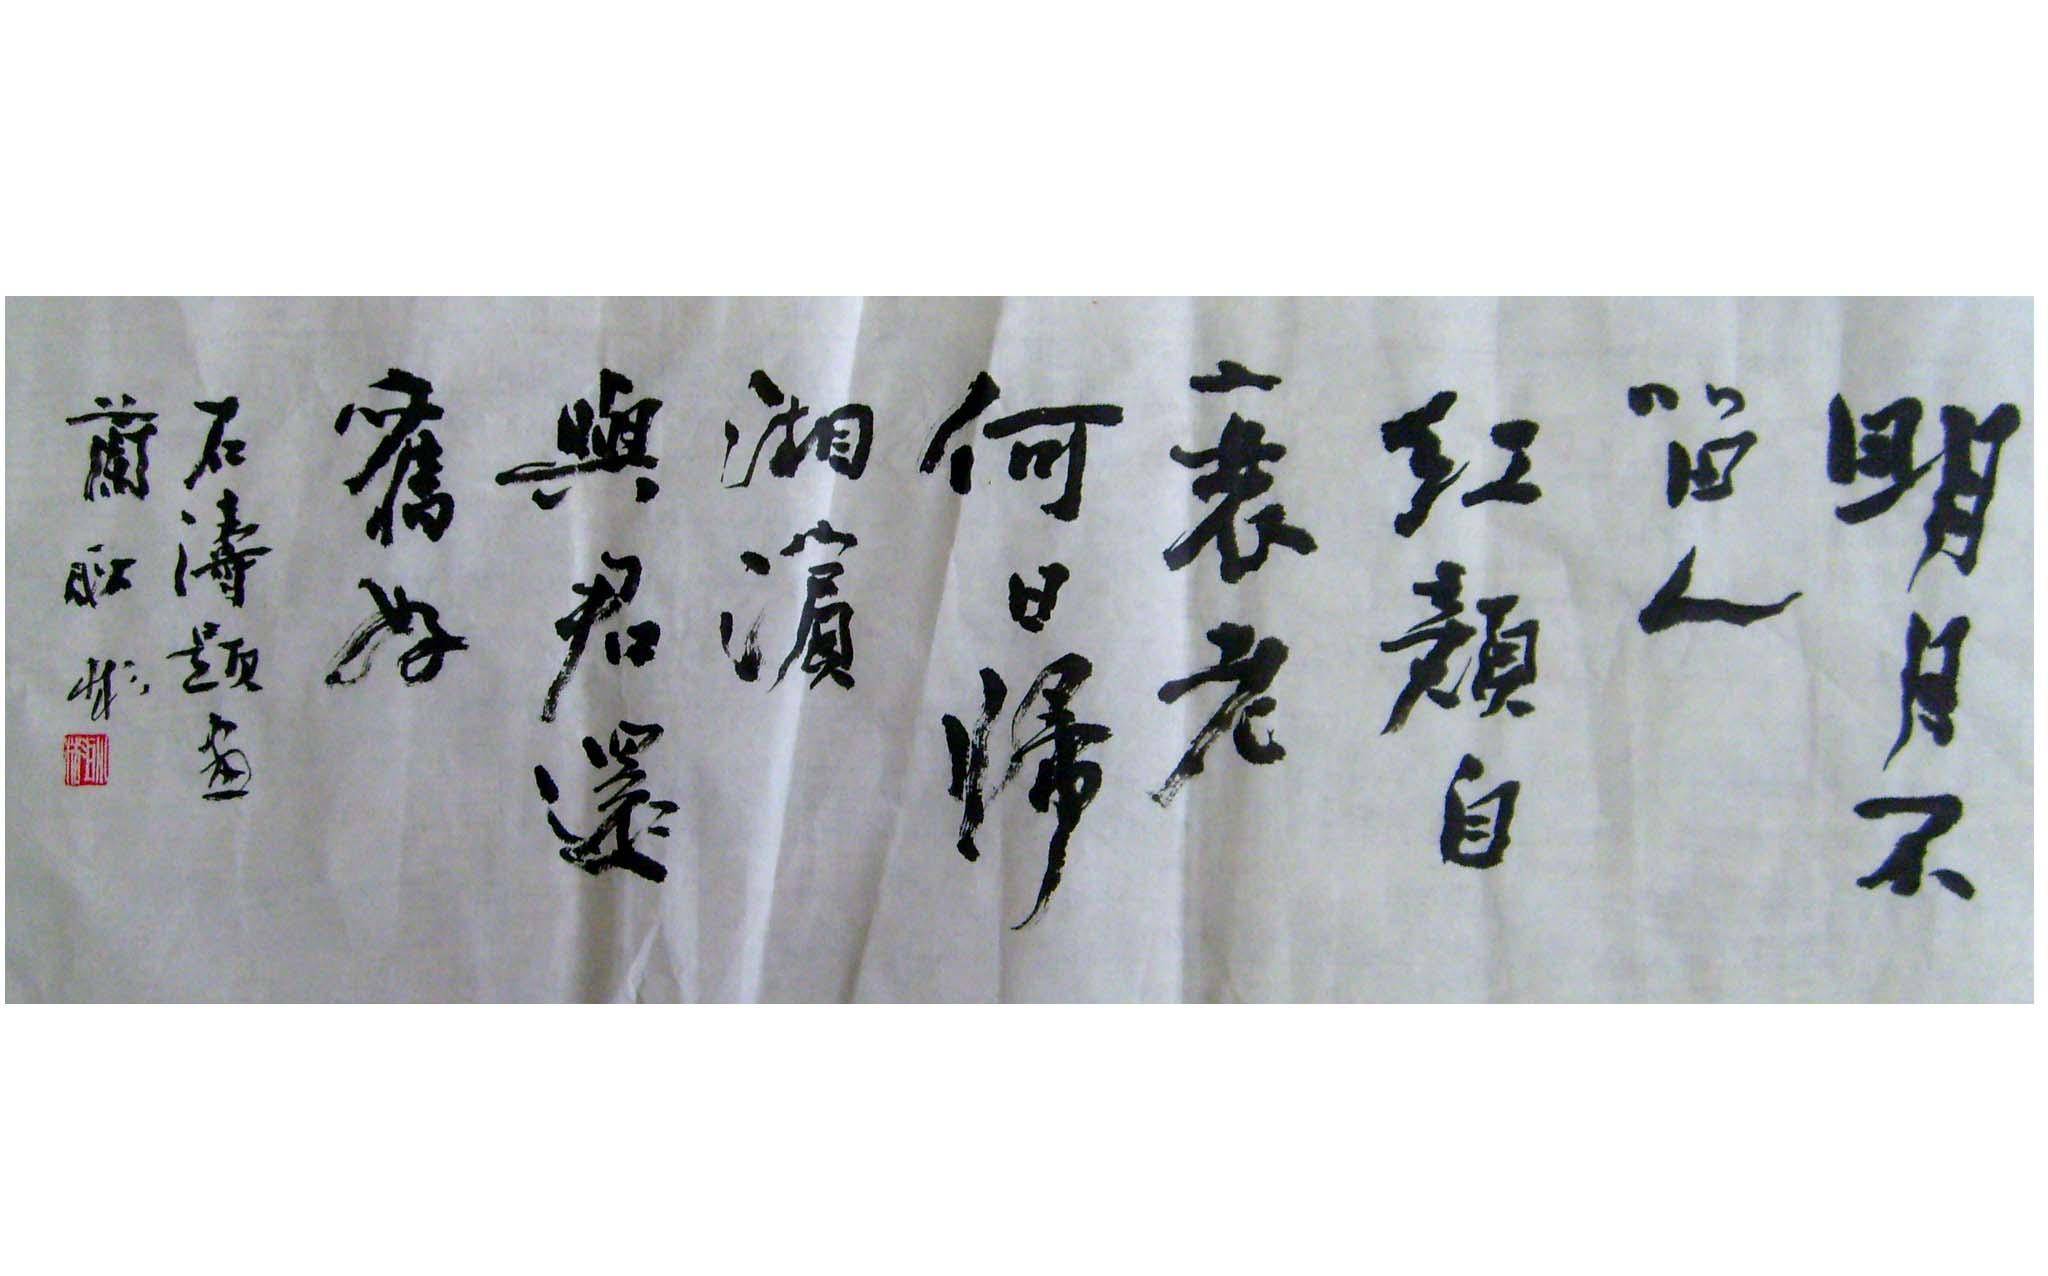 明月不
留人
紅顏自
衰老
何日歸
湘濱
與君還
舊好
石濤題畫
蘭